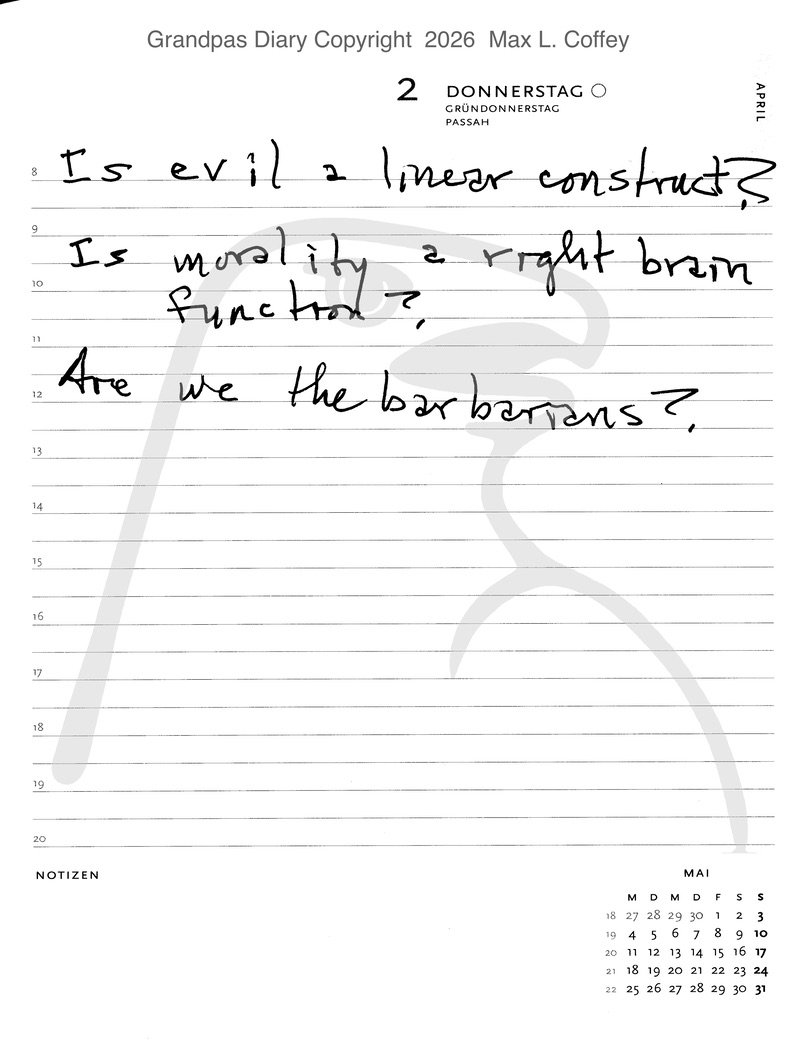 Grandpas Diary Copyright 2026 Max L. Coffey
2 DONNERSTAG
GRÜNDONNERSTAG
PASSAH
APRIL
8 Is evil a linear construct?
9
Is morality a right brain
10
function?
11
Are we the barbarians?
12
13
14
15
16
17
18
19
20
NOTIZEN
MAI
M D M D F S S
18 27 28 29 30 1 2 3
19 4 5 6 7 8 9 10
20 11 12 13 14 15 16 17
21 18 19 20 21 22 23 24
22 25 26 27 28 29 30 31